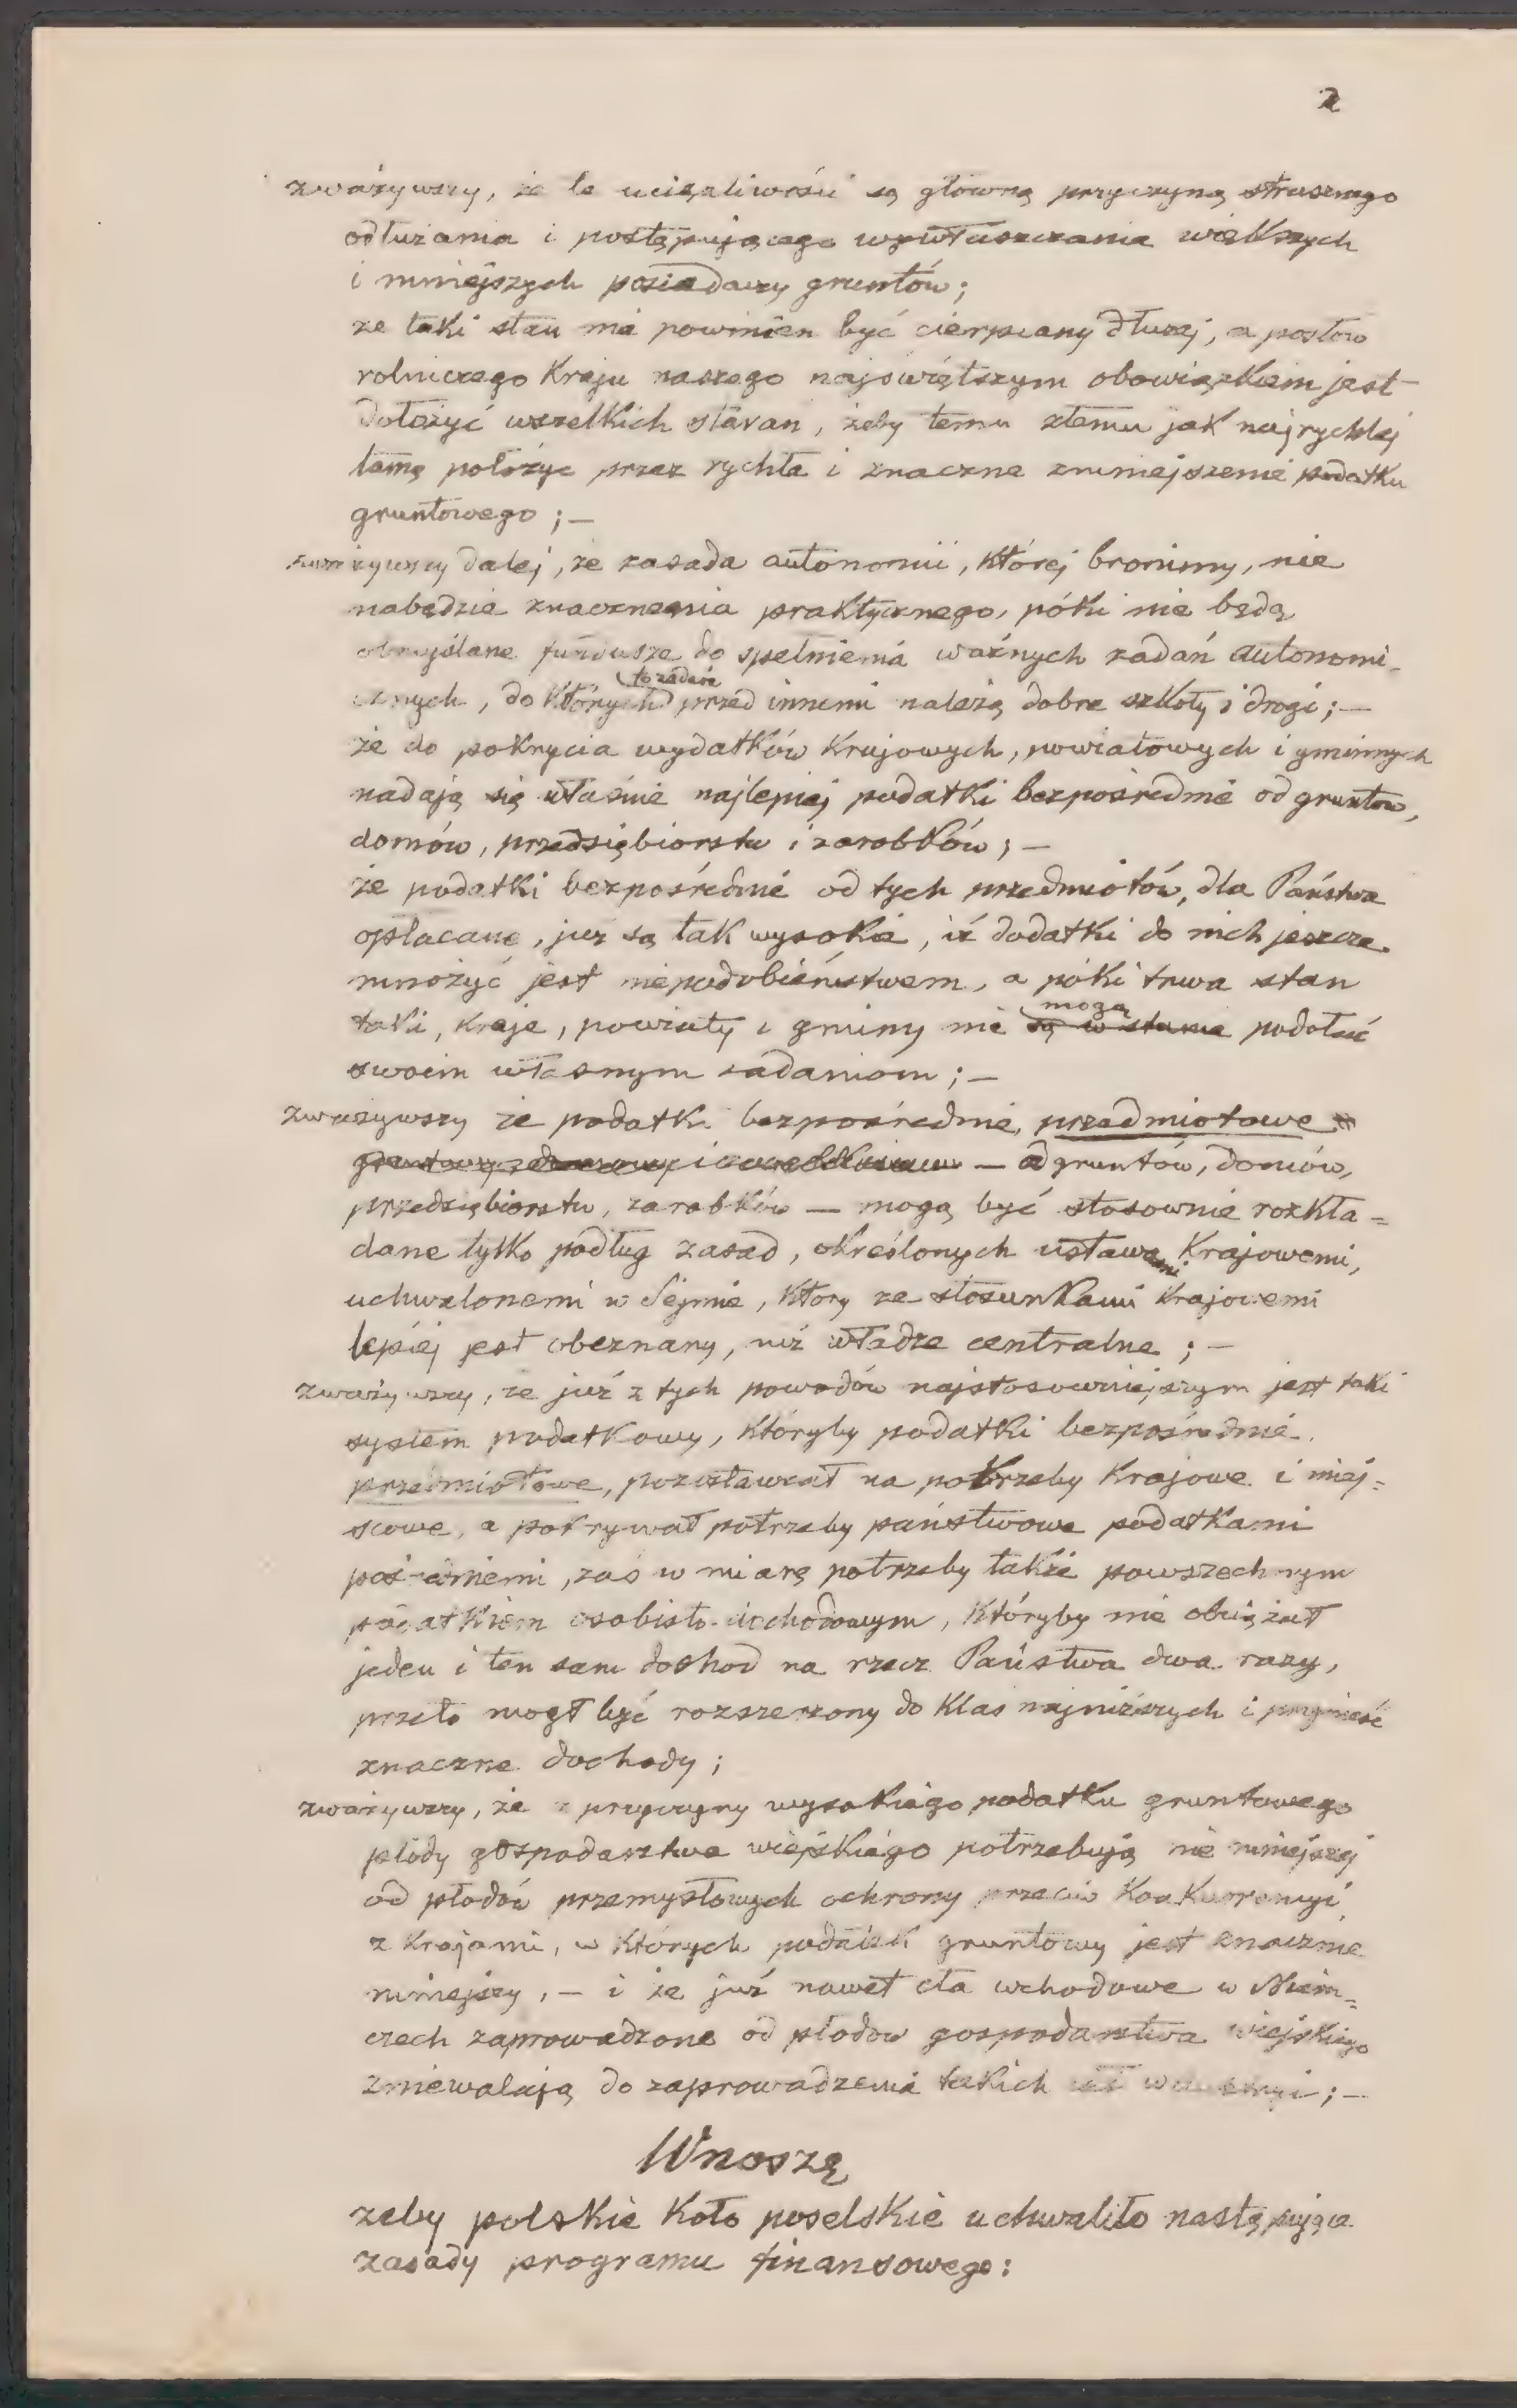 2
zważywszy, że te uciążliwości są główną przyczyną strasznego
odłużania i postępującego wywłaszczania większych
i mniejszych posiadaczy gruntów;
że taki stan nie powinien być cierpiany dłużej, a posłów
rolniczego Kraju naszego najświętszym obowiązkiem jest
dołożyć wszelkich starań, żeby temu złemu jak najrychlej
tamę położyc przez rychłe i znaczne zmniejszenie podatku
gruntowego; —
zważywszy dalej, że zasada autonomii, której bronimy, nie
nabędzie znaczenia praktycznego, póki nie będą
obmyślane fundusze do spełnienia ważnych zadań autonomi-
cznych, do których przed innemi należą dobre szkoły i drogi; —
że do pokrycia wydatków Krajowych, powiatowych i gminnych
nadają się właśnie najlepiej podatki bezpośrednie od gruntów,
domów, przedsiębiorstw i zarobków; —
że podatki bezpośrednie od tych przedmiotów, dla Państwa
opłacane, już są tak wysokie, iż dodatki do nich jeszcze
mnożyć jest niepodobieństwem, a póki trwa stan
taki, kraje, powiaty i gminy nie mogą są w stanie podołać
swoim własnym zadaniom; —
zważywszy że podatki bezpośrednie, przedmiotowe
— od gruntów, domów,
przedsiębiorstw, zarobków — mogą być stosownie rozkła=
dane tylko podług zasad, określonych ustawami Krajowemi,
uchwalonemi w Sejmie, który ze stosunkami Krajowemi
lepiej jest obeznany, niż władze centralne; —
zważywszy, że już z tych powodów najstosowniejszym jest taki
system podatkowy, któryby podatki bezpośrednie
przedmiotowe, pozostawiał na potrzeby Krajowe i miej=
scowe, a pokrywał potrzeby państwowe podatkami
pośredniemi, zaś w miarę potrzeby także powszechnym
podatkiem osobisto-dochodowym, któryby nie obciążał
jeden i ten sam dochód na rzecz Państwa dwa razy,
przeto mógł być rozszerzony do klas najniższych i przynieść
znaczne dochody;
zważywszy, że z przyczyny wysokiego podatku gruntowego
płody gospodarstwa wiejskiego potrzebują nie mniejszej
od płodów przemysłowych ochrony przeciw Konkurencyi
z Krajami, w których podatek gruntowy jest znacznie
mniejszy, — i że już nawet cła wchodowe w Niem=
czech zaprowadzone od płodów gospodarstwa wiejskiego
zniewalają do zaprowadzenia takich ceł ; —
Wnoszę
żeby polskie Koło poselskie uchwaliło następujące
zasady programu finansowego: